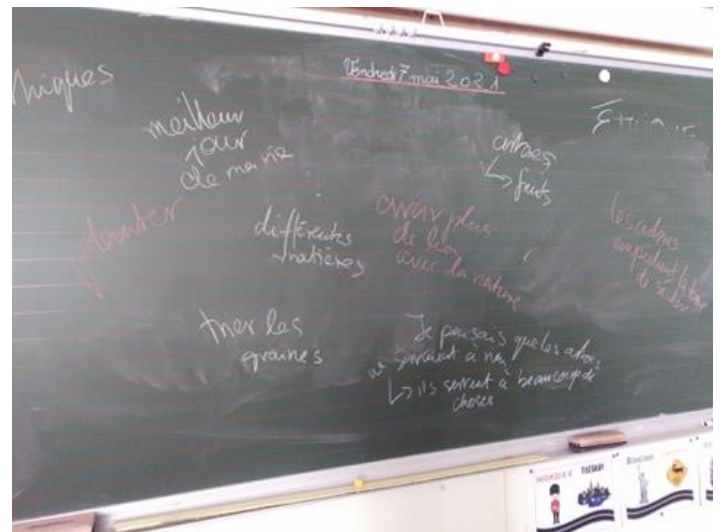 Vendredi 7 mai 2021
niques
meilleur
jour
de ma vie
arbres
↳ fruits
planter
différentes
matières
avoir plus
de lien
avec la nature
les arbres
empêchent la terre
de sécher
trier les
graines
Je pensais que les arbres
ne servaient à rien
↳ ils servent à beaucoup de
choses